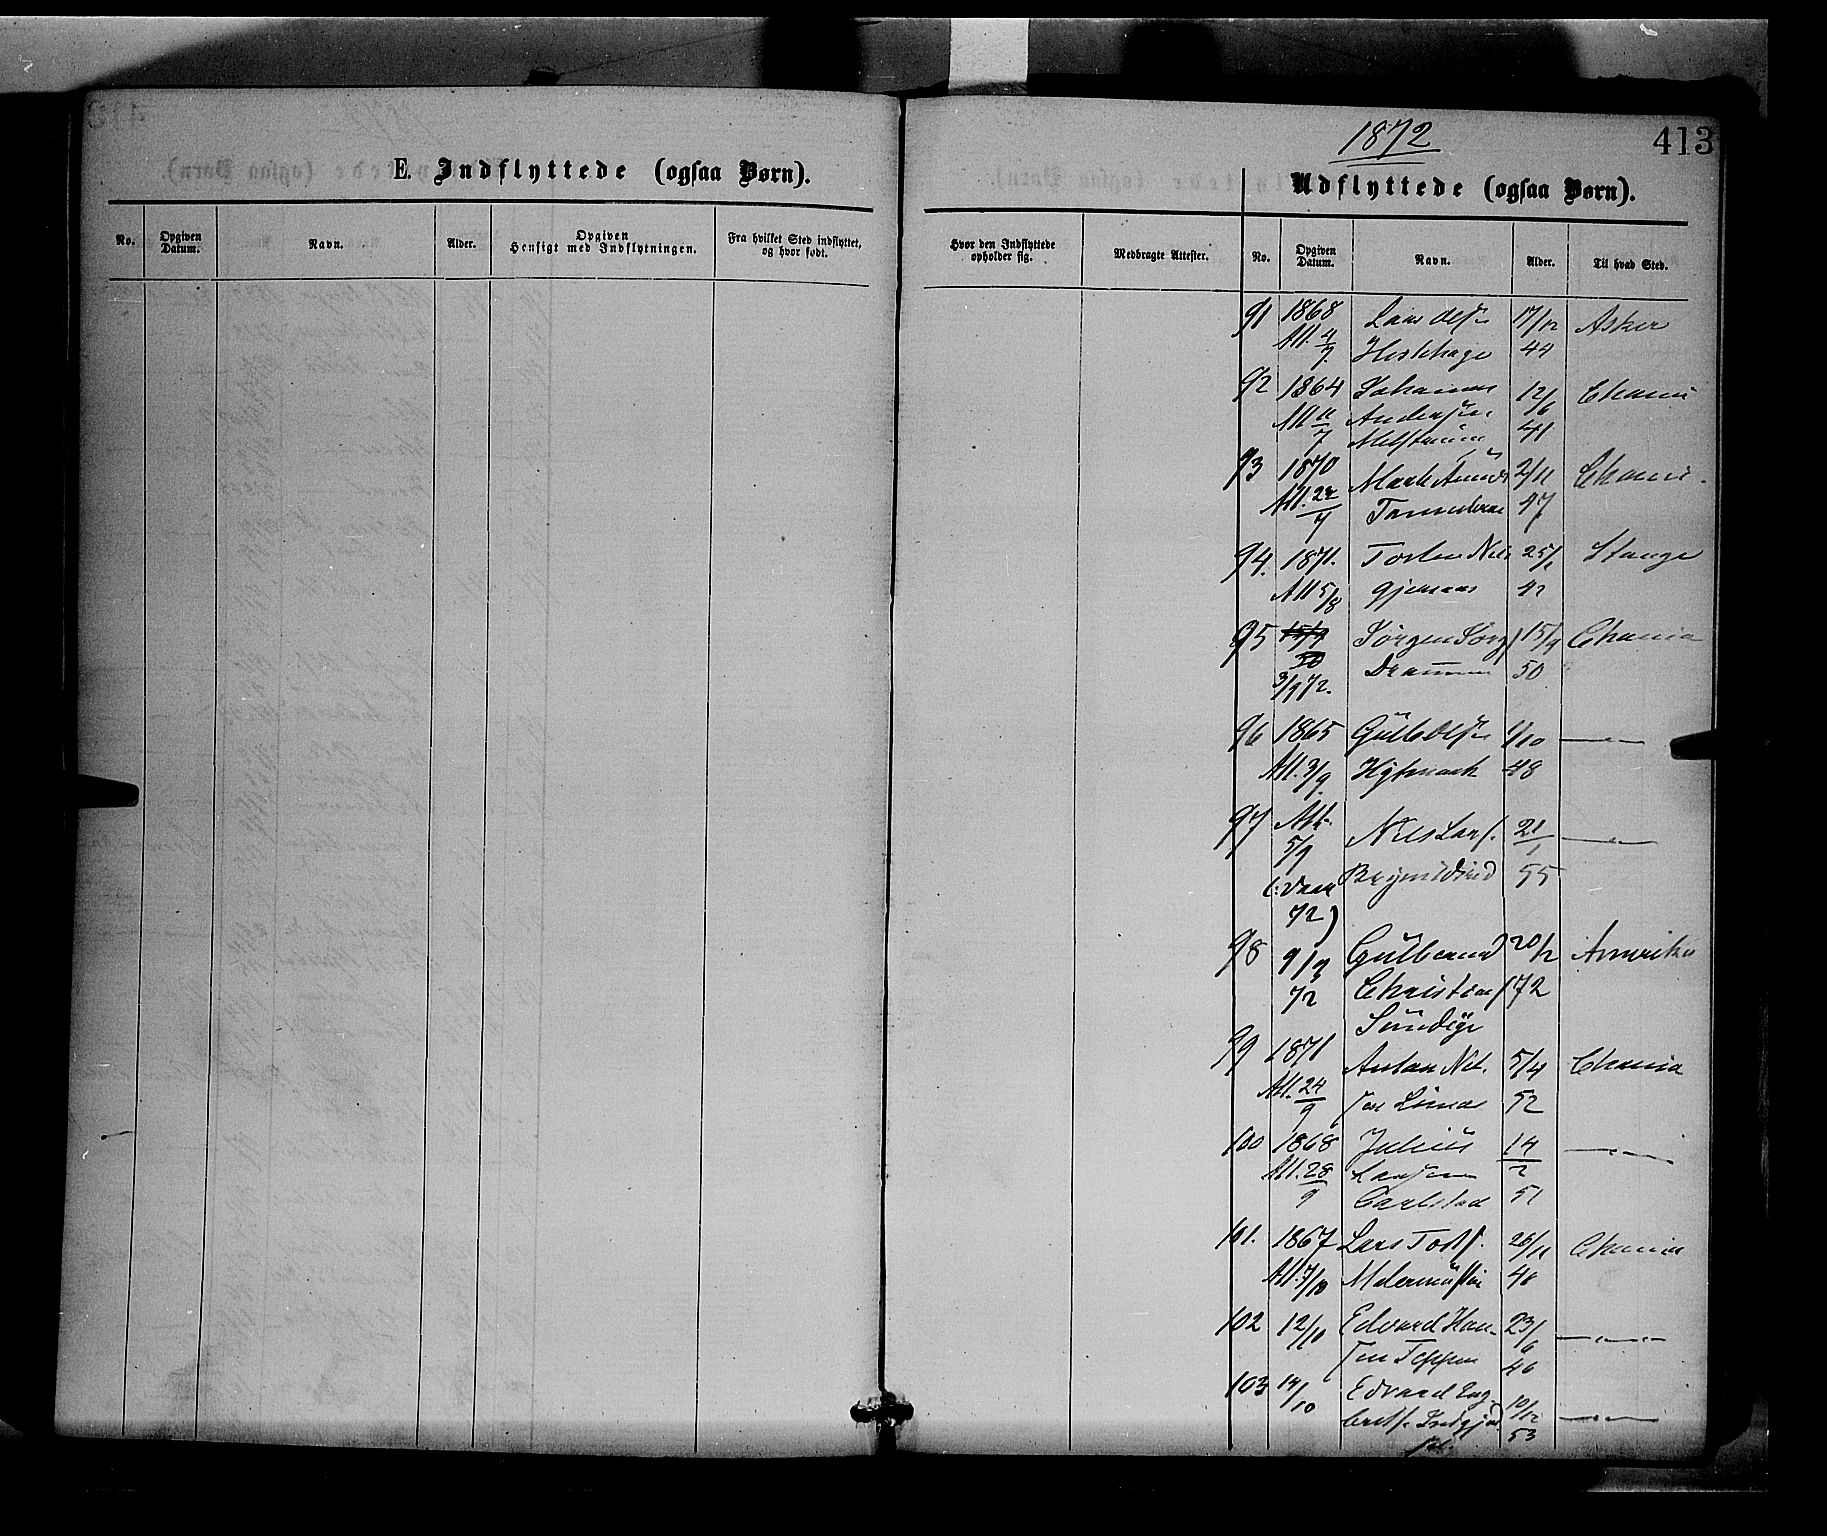 1872
413
E. Indflyttede (ogsaa Børn).
Udflyttede (ogsaa Børn).
No.
Opgiven Datum.
Navn.
Alder.
Opgiven Hensigt med Indflytningen.
Fra hvilket Sted indflyttet, og hvor født.
Hvor den Indflyttede opholder sig.
Medbragte Attester.
No.
Opgiven Datum.
Navn.
Alder.
Til hvad Sted.
91 1868 Lars Ols 17/12 Asker
Att. 4/7 Hestehage 44
92 1864 Johannes 12/6 Chania
Att 11/7 Andersen 41
93 1870 2/11 Chania
Att. 24/7 47
94. 1871. Torsten Nils 25/1 Stange
Att 5/8 42
95 15/9 Jørgen Jørg 15/9 Chania
50 Drammen 50
3/9 72.
96 1865 Gulb Ols 1/10 —"—
Att. 3/9 48
97 Att. Nils Lars. 21/1 —"—
5/9 55
72)
98 9/9 Gulbrand 20/2 Amerika
72 Christian 72
99 1871 Anton Nil. 5/4 Chania
Att. 24/9 sen 52
100 1868 Julius 14/2 —"—
Att. 28/9 Larsen 51
Carlstad
101. 1867 Lars Tost. 26/11 Chania
Att. 7/10 46
102 12/10 Edvard Han- 23/6 —"—
sen 46
103 14/10 Edvard Eng 10/12 —"—
53